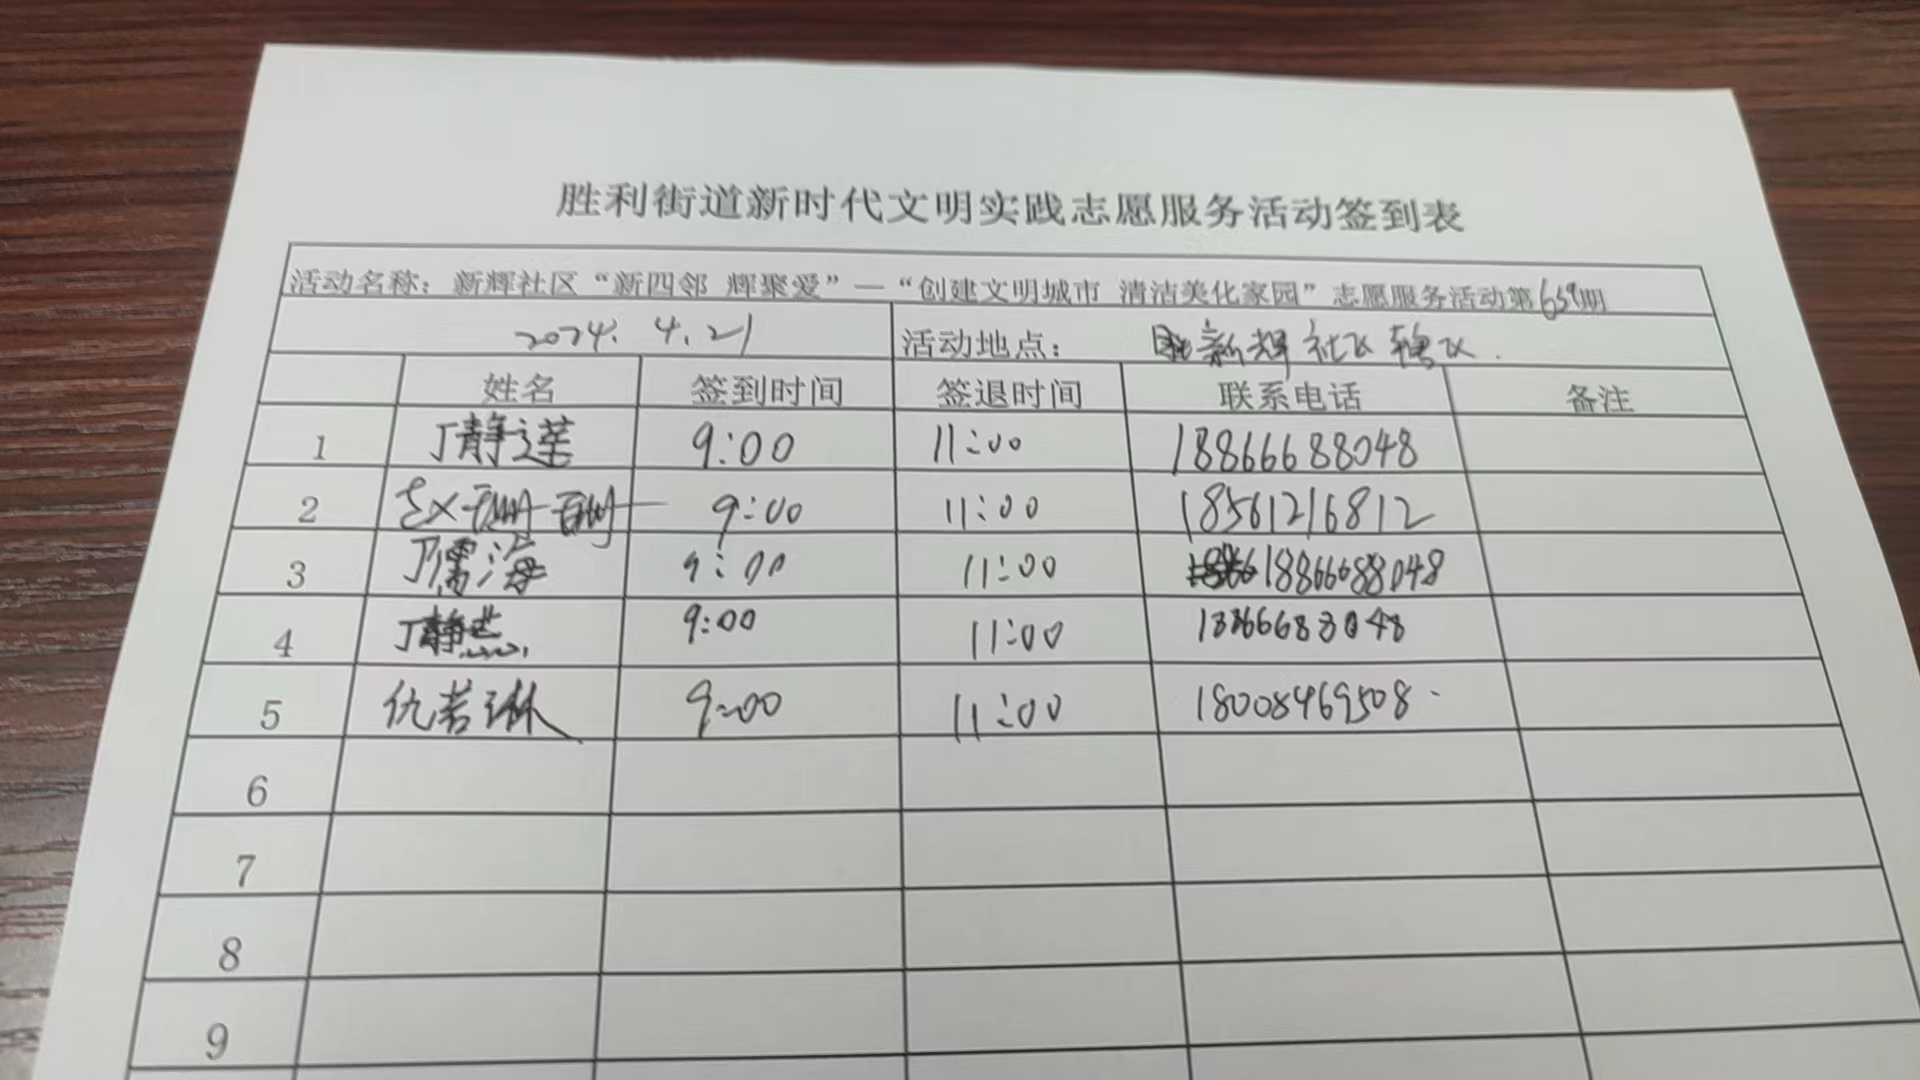 胜利街道新时代文明实践志愿服务活动签到表
活动名称：新辉社区“新四邻 辉聚爱”—“创建文明城市 清洁美化家园”志愿服务活动第659期
2024.4.21 活动地点： 新辉社区辖区.
姓名 签到时间 签退时间 联系电话 备注
1 丁静莲 9:00 11:00 18866688048
2 9:00 11:00 18561216812
3 丁儒海 9:00 11:00 18866688048
4 丁静燕 9:00 11:00
5 仇若琳 9:00 11:00 18008469508
6
7
8
9